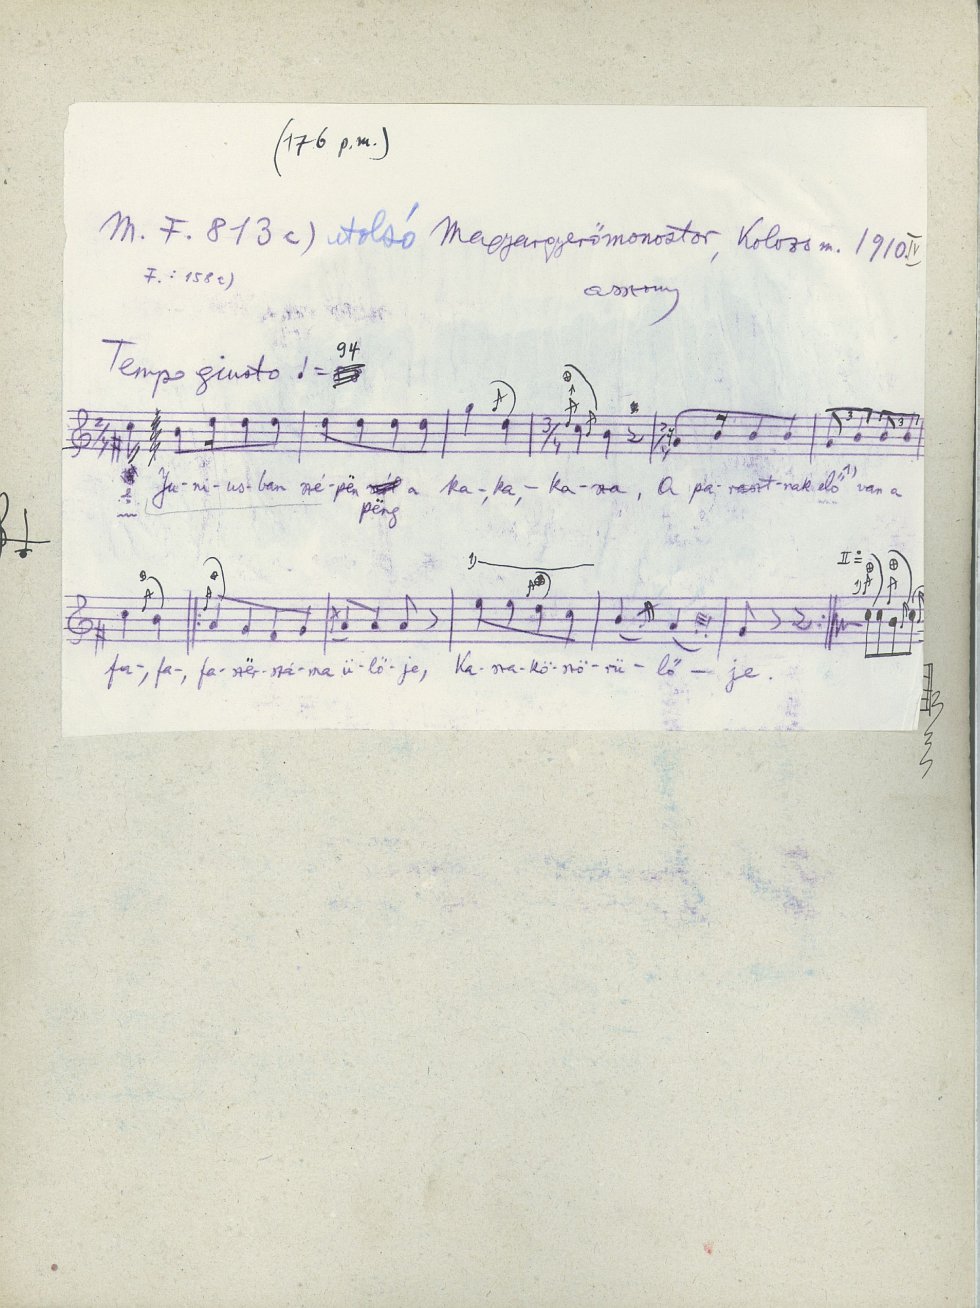 (176 p.m.)
M. F. 813 c) utolsó Magyargyerőmonostor, Kolozs m. 1910 IV
F.: 158 c)
asszony
Tempo giusto ♩ = 94
Ju-ni-us-ban szé-pën a ka-, ka, - ka-sza, A pa-raszt-nak elő 1) van a
pëng
1)
II =
1)
fa-, fa-, fa-szër-szá-ma ü-lő-je, Ka-sza-kö-szö-rü-lő — je.